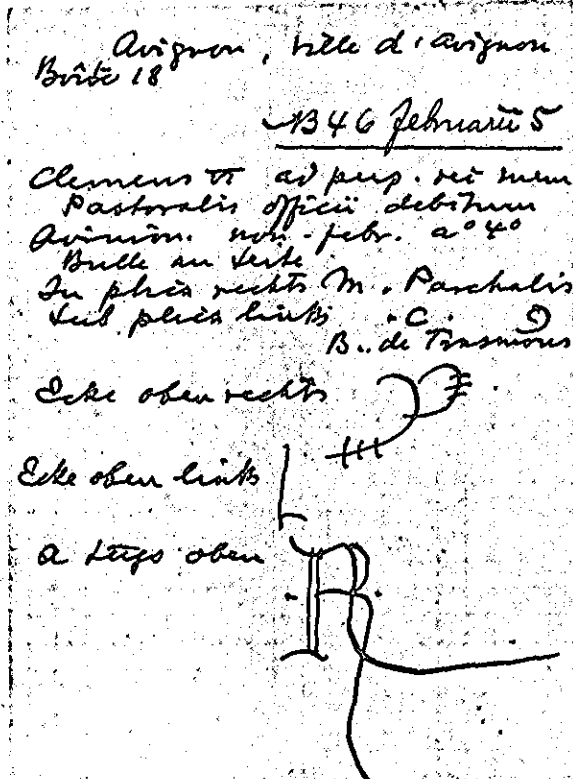 Avignon, ville d'Avignon
Boîte 18
1346 februarii 5
Clemens VI ad perp. rei mem
Pastoralis officii debitum
Avinion. non. febr. a° 4°
Bulle an Seide
In plica rechts M. Paschalis
Sub plica links . C .
B.. de
Ecke oben rechts
Ecke oben links
a tergo oben
R